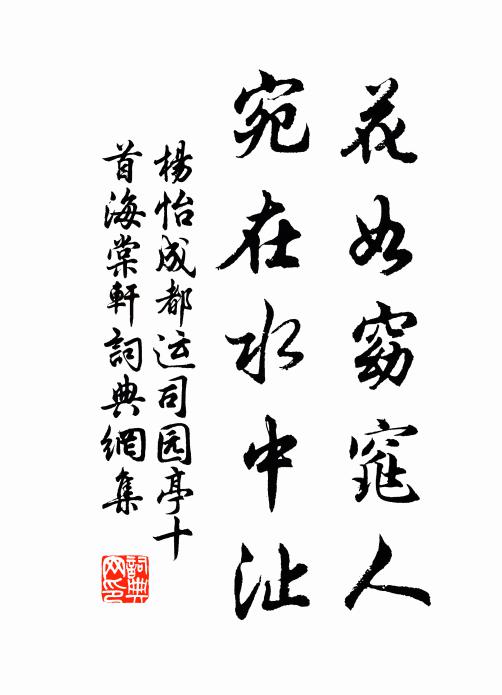 花如窈窕人
宛在水中沚
楊怡成都运司园亭十
首海棠軒詞典網集
詞典网印